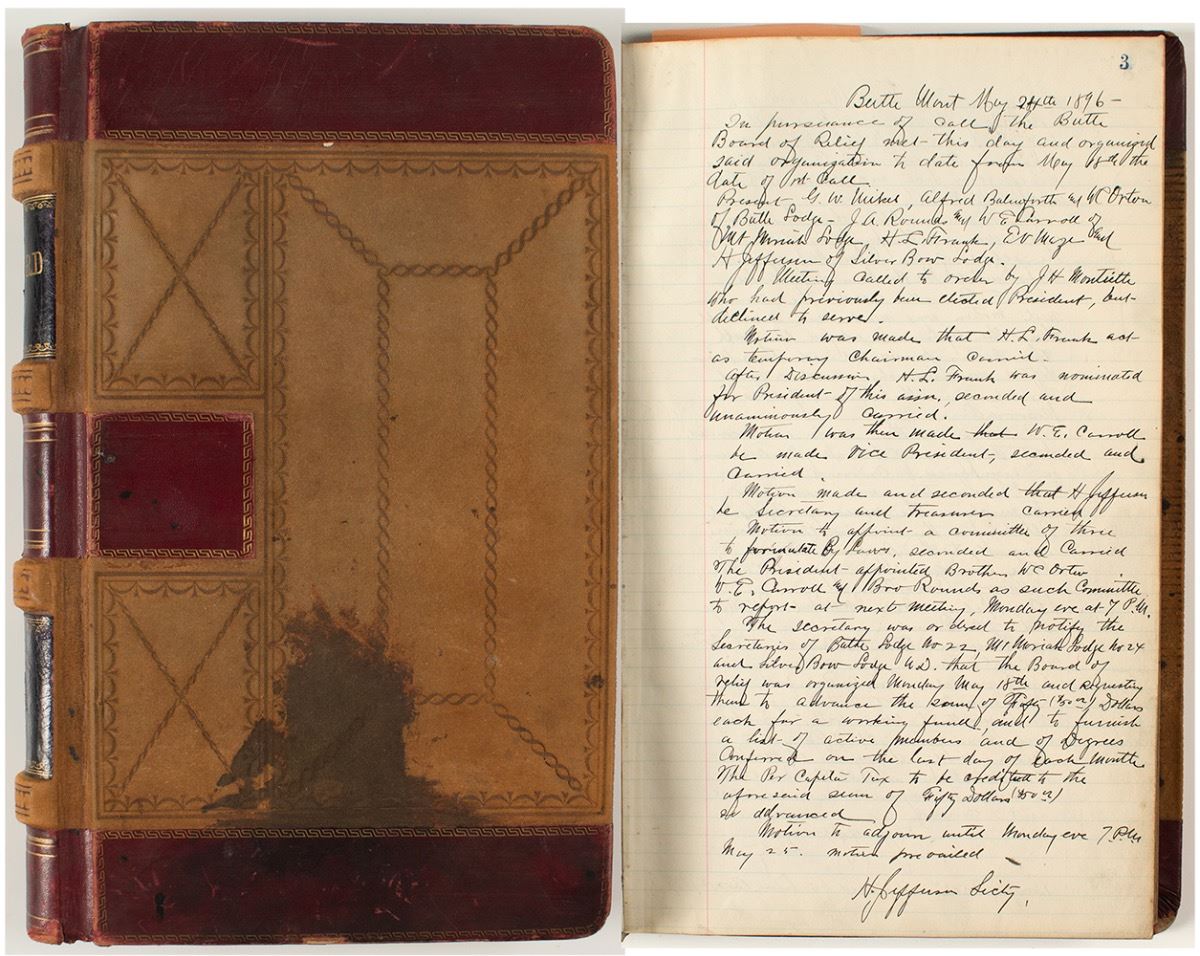 LD
3
Butte Mont May 24th 1896 -
In pursuance of call the Butte
Board of Relief met this day and organized
said organization to date from May 18th the
date of 1st call
Present G. W. Alfred & W C Orton
of Butte Lodge - J. A. Rounds & W E Carroll of
Mt Moriah Lodge, H. L. Frank, E V Maze and
H Jefferson of Silver Bow Lodge.
Meeting called to order by J H
who had previously been elected President, but
declined to serve.
Motion was made that H. L. Frank act
as temporary Chairman carried.
After Discussion H. L. Frank was nominated
for President of this assn, seconded and
unaminously carried.
Motion was then made that W. E. Carroll
be made Vice President, seconded and
carried.
Motion made and seconded that H Jefferson
be Secretary and treasurer carried
Motion to appoint a committee of three
to formulate By Laws, seconded and Carried
The President appointed Brothers WC Orton
W. E. Carroll & Bro Rounds as such Committee
to report at next meeting, Monday eve at 7 P.M.
The secretary was ordered to notify the
Secretaries of Butte Lodge No 22, Mt Moriah Lodge No 24
and Silver Bow Lodge U.D. that the Board of
relief was organized Monday May 18th and requesting
them to advance the sum of Fifty ($50 00) Dollars
each for a working fund, and to furnish
a list of active members and of Degrees
Conferred on the last day of each Month
The Per Capita Tax to be credited to the
aforesaid sum of Fifty Dollars ($50 00)
so advanced
Motion to adjourn until Monday eve 7 P.M
May 25. motion prevailed -
H. Jefferson Secty,